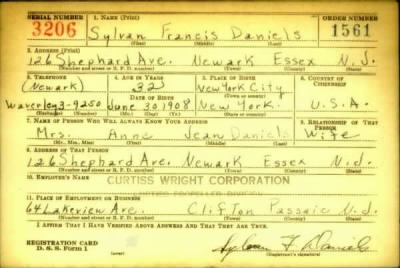 SERIAL NUMBER 1. NAME (Print) ORDER NUMBER
3206 Sylvan Francis Daniels 1561
(First) (Middle) (Last)
2. ADDRESS (Print)
126 Shephard Ave. Newark Essex N.J.
(Number and street or R. F. D. number) (Town) (County) (State)
3. TELEPHONE 4. AGE IN YEARS 5. PLACE OF BIRTH 6. COUNTRY OF CITIZENSHIP
(Newark) 32 New York City
DATE OF BIRTH (Town or county)
Waverley 3-9250 June 30 1908 New York. U.S.A.
(Exchange) (Number) (Mo.) (Day) (Yr.) (State or country)
7. NAME OF PERSON WHO WILL ALWAYS KNOW YOUR ADDRESS 8. RELATIONSHIP OF THAT PERSON
Mrs. Anne Jean Daniels Wife
(Mr., Mrs., Miss) (First) (Middle) (Last)
9. ADDRESS OF THAT PERSON
126 Shephard Ave. Newark Essex N.J.
(Number and street or R. F. D. number) (Town) (County) (State)
10. EMPLOYER'S NAME
CURTISS WRIGHT CORPORATION
PROPELLER DIVISION
11. PLACE OF EMPLOYMENT OR BUSINESS
64 Lakeview Ave. Clifton Passaic N.J.
(Number and street or R. F. D. number) (Town) (County) (State)
I AFFIRM THAT I HAVE VERIFIED ABOVE ANSWERS AND THAT THEY ARE TRUE.
REGISTRATION CARD
D. S. S. Form 1 Sylvan F. Daniels
(Registrant's signature)